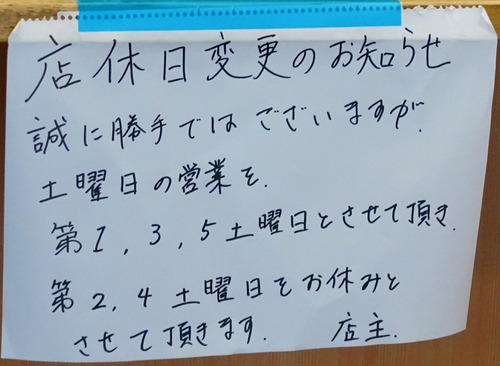 店休日変更のお知らせ
誠に勝手ではございますが.
土曜日の営業を.
第1,3,5土曜日とさせて頂き.
第2,4土曜日をお休みと
させて頂きます. 店主.